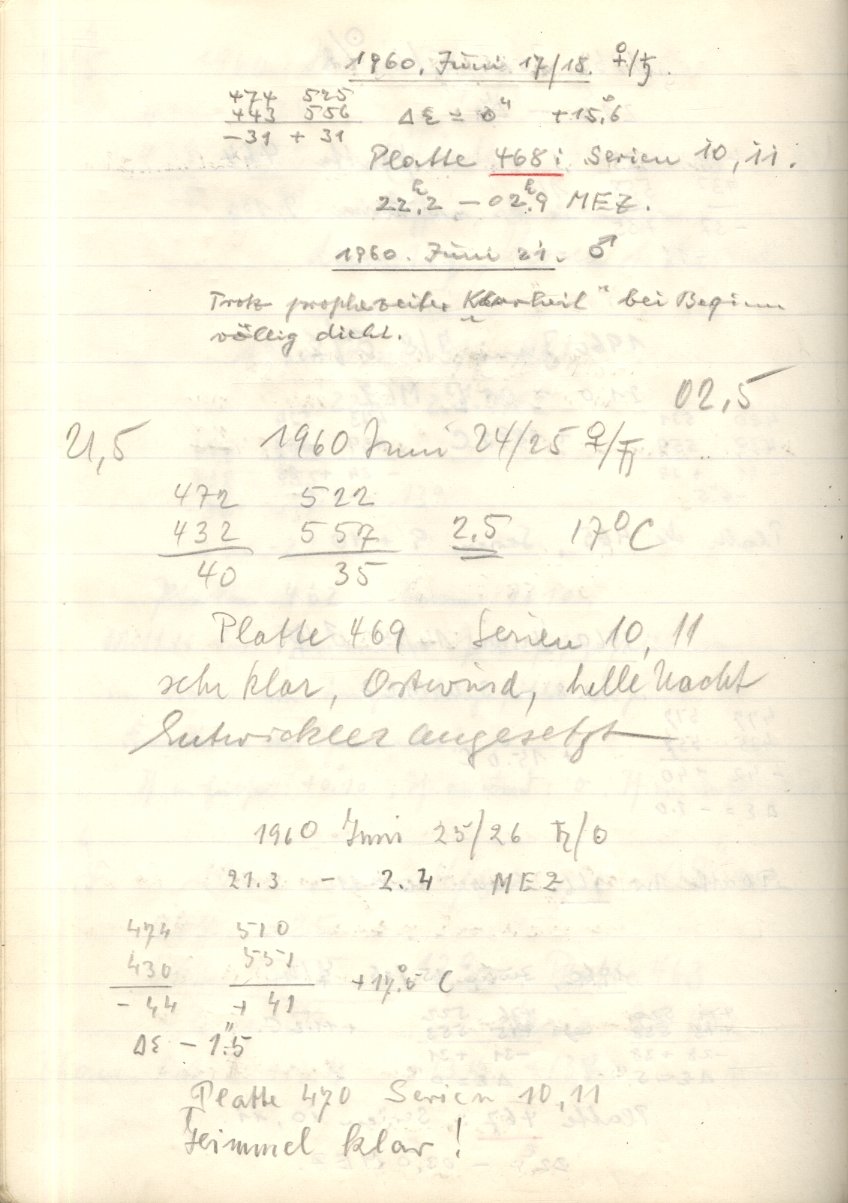 1960. Juni 17/18. ♀/♄.
474 525
443 556 Δε = 0" +15°.6
-31 + 31
Platte 468; Serien 10, 11.
22h.2 - 02h.9 MEZ.
1960. Juni 21. ♂
Trotz prophezeiter "Klarheit" bei Beginn
völlig dicht.
02,5
21,5 1960 Juni 24/25 ♀/♄
472 522
432 557 2.5 17°C
40 35
Platte 469 Serien 10, 11
sehr klar, Ostwind, helle Nacht
Entwickler angesetzt
1960 Juni 25/26 ♄/☉
21.3 - 2.4 MEZ
474 510
430 551
- 44 + 41 C
Δε - 1".5
Platte 470 Serien 10, 11
Himmel klar!